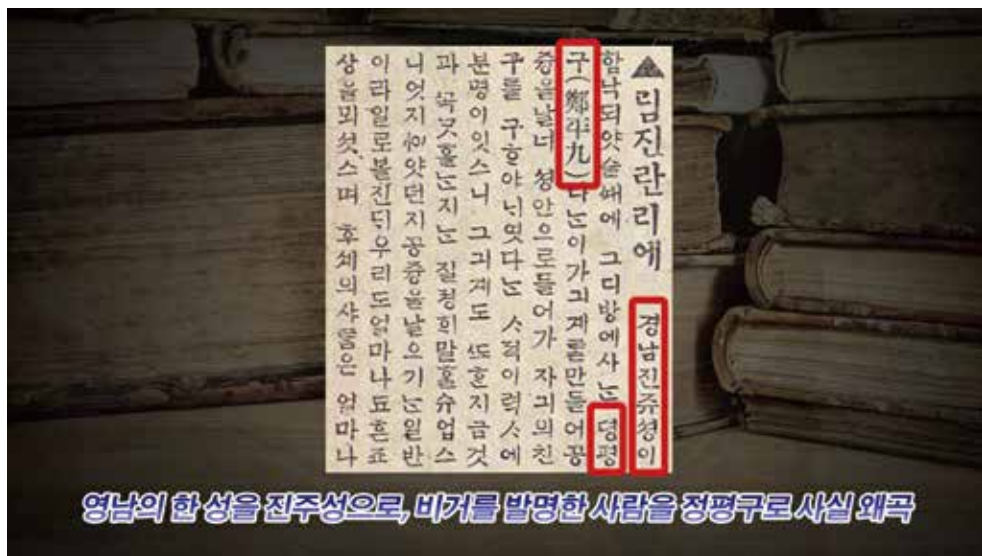 ▲림진란리에 경남진쥬셩이
함낙되얏슬ᄯᅢ에 그디방에사는 뎡평
구(鄭平九)라는이가긔계를만들어공
즁을날너 셩안으로들어가 자긔의친
구를 구ᄒᆞ야ᄂᆡ엿다는 ᄉᆞ적이력ᄉᆞ에
분명이잇스니 그긔계도 ᄯᅩ흔지금것
과 ᄭᅩᆨᄀᆞᆺ흘는지는 질정히말ᄒᆞᆯ슈업스
니엇지ᄒᆞ얏던지공즁을날으기는일반
이라일로볼진ᄃᆡ우리도얼마나됴흔죠
상을뫼섯스며 후셰의사ᄅᆞᆷ은 얼마나
영남의 한 성을 진주성으로, 비거를 발명한 사람을 정평구로 사실 왜곡